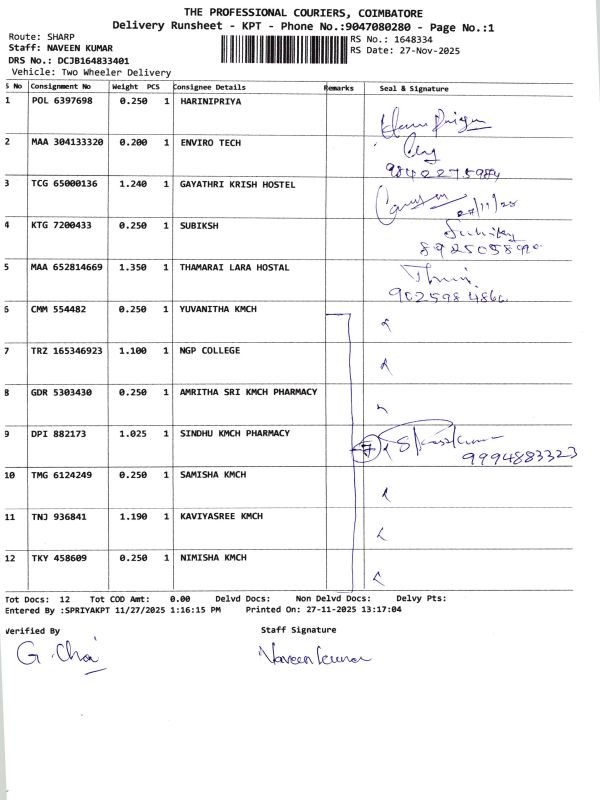 THE PROFESSIONAL COURIERS, COIMBATORE
Delivery Runsheet - KPT - Phone No.:9047080280 - Page No.:1
Route: SHARP
RS No.: 1648334
Staff: NAVEEN KUMAR
RS Date: 27-Nov-2025
DRS No.: DCJB164833401
Vehicle: Two Wheeler Delivery
S No Consignment No Weight PCS Consignee Details Remarks Seal & Signature
1 POL 6397698 0.250 1 HARINIPRIYA
2 MAA 304133320 0.200 1 ENVIRO TECH
9842275984
3 TCG 65000136 1.240 1 GAYATHRI KRISH HOSTEL
27/11/25
4 KTG 7200433 0.250 1 SUBIKSH
5 MAA 652814669 1.350 1 THAMARAI LARA HOSTAL
6 CMM 554482 0.250 1 YUVANITHA KMCH
7 TRZ 165346923 1.100 1 NGP COLLEGE
8 GDR 5303430 0.250 1 AMRITHA SRI KMCH PHARMACY
9 DPI 882173 1.025 1 SINDHU KMCH PHARMACY
7
9994883323
10 TMG 6124249 0.250 1 SAMISHA KMCH
11 TNJ 936841 1.190 1 KAVIYASREE KMCH
12 TKY 458609 0.250 1 NIMISHA KMCH
Tot Docs: 12 Tot COD Amt: 0.00 Delvd Docs: Non Delvd Docs: Delvy Pts:
Entered By :SPRIYAKPT 11/27/2025 1:16:15 PM Printed On: 27-11-2025 13:17:04
Verified By Staff Signature
Naveen kumar